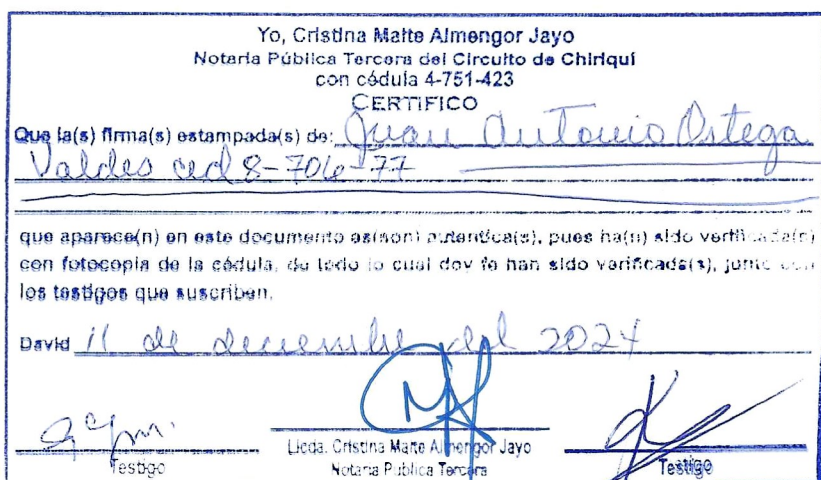 Yo, Cristina Maite Almengor Jayo
Notaria Pública Tercera del Circuito de Chiriquí
con cédula 4-751-423
CERTIFICO
Que la(s) firma(s) estampada(s) de: Juan Antonio Ortega
Valdes ced 8-706-77
que aparece(n) en este documento es(son) autentica(s), pues ha(n) sido verificada(s)
con fotocopia de la cédula, de todo lo cual doy fe han sido verificada(s), junto con
los testigos que suscriben.
David 11 de diciembre del 2024
Testigo
Licda. Cristina Maite Almengor Jayo
Notaria Pública Tercera
Testigo